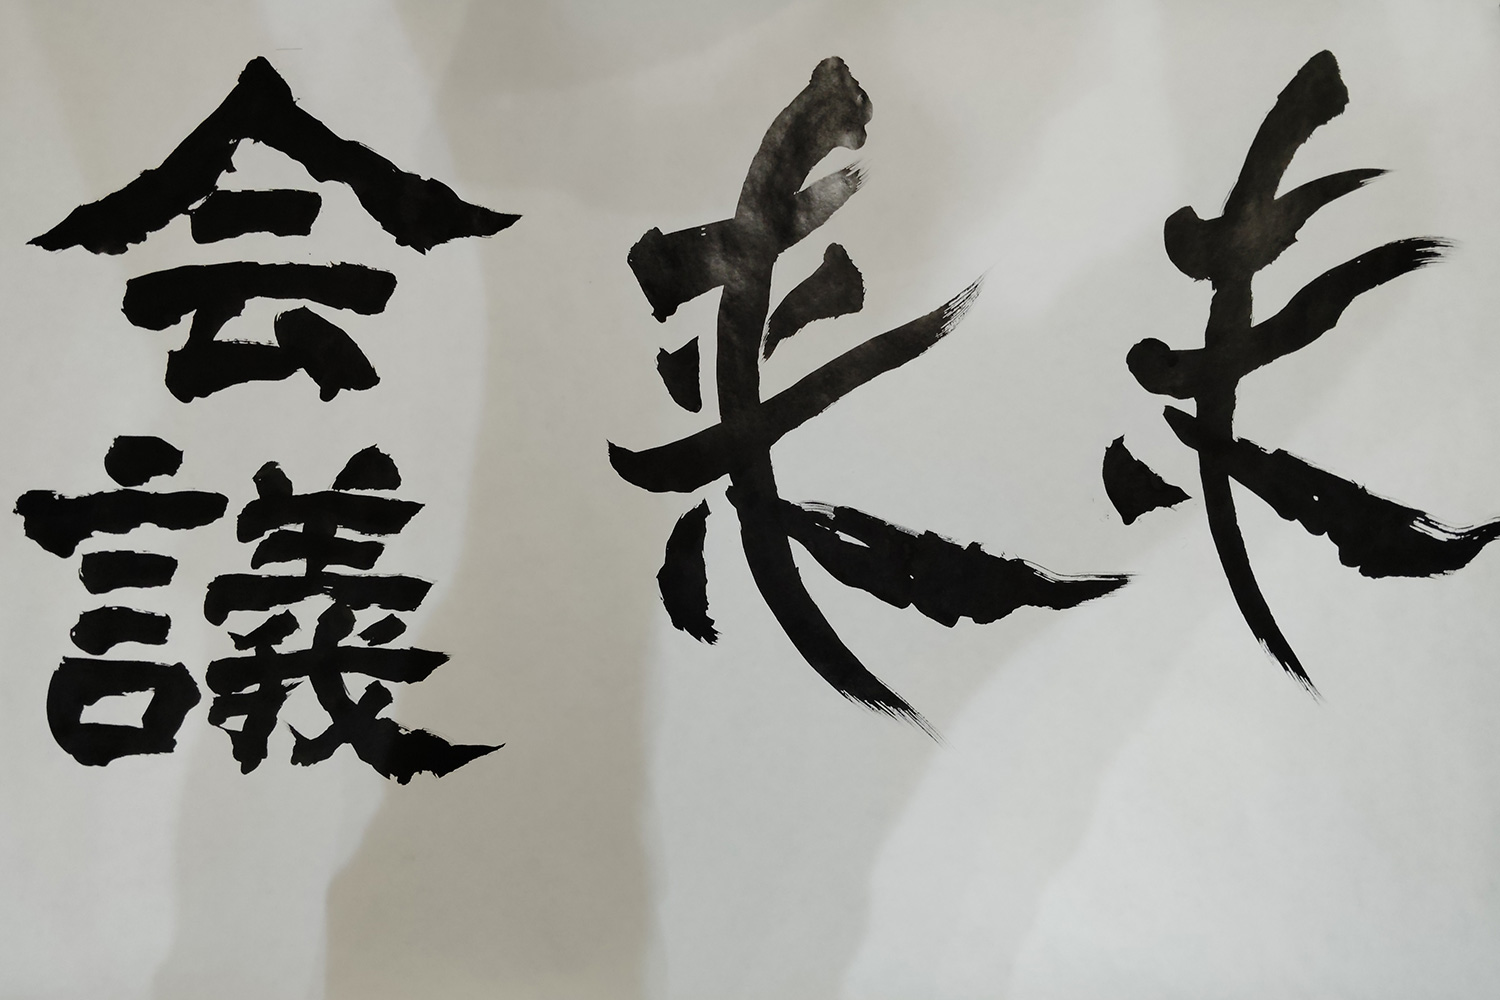 未来
会議